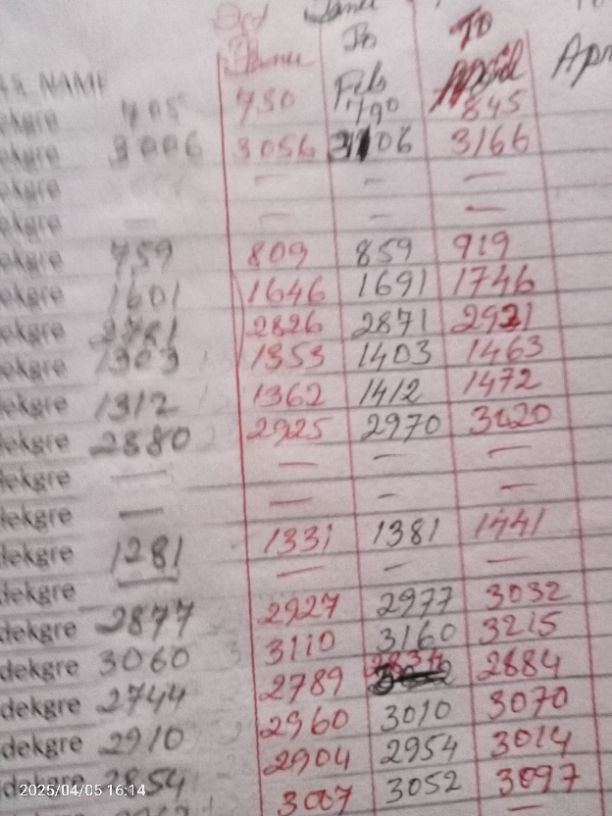 Oct
To To
Feb April Apr
NAME
ekgre 705 750 790 845
ekgre 3006 3056 3106 3166
ekgre — — —
ekgre — — — —
ekgre 759 809 859 919
ekgre 1601 1646 1691 1746
ekgre 2781 2826 2871 2921
ekgre 1303 1353 1403 1463
ekgre 1312 1362 1412 1472
lekgre 2880 2925 2970 3020
lekgre — — — —
lekgre — — — —
lekgre 1281 1331 1381 1441
dekgre — — — —
dekgre 2877 2927 2977 3032
dekgre 3060 3110 3160 3215
dekgre 2744 2789 2834 2884
dekgre 2910 2960 3010 3070
dekgre 2854 2904 2954 3014
3007 3052 3097
2025/04/05 16:14